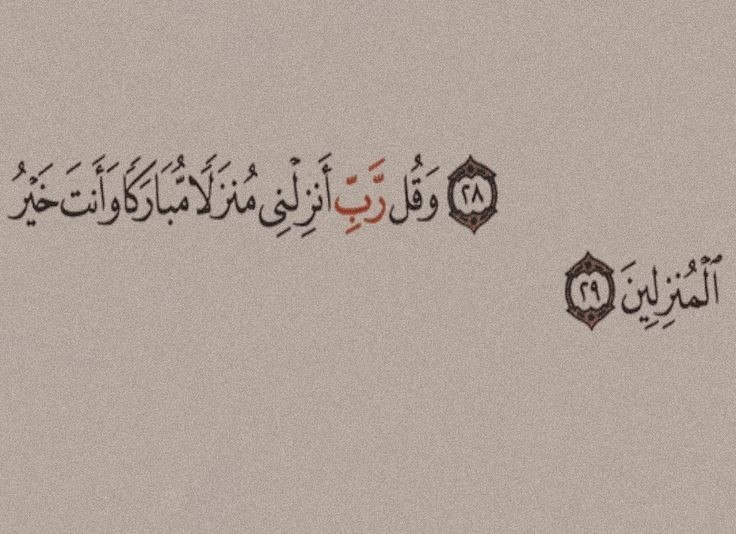 ٢٨ وَقُل رَّبِّ أَنزِلْنِى مُنزَلًا مُّبَارَكًا وَأَنتَ خَيْرُ
ٱلْمُنزِلِينَ ٢٩